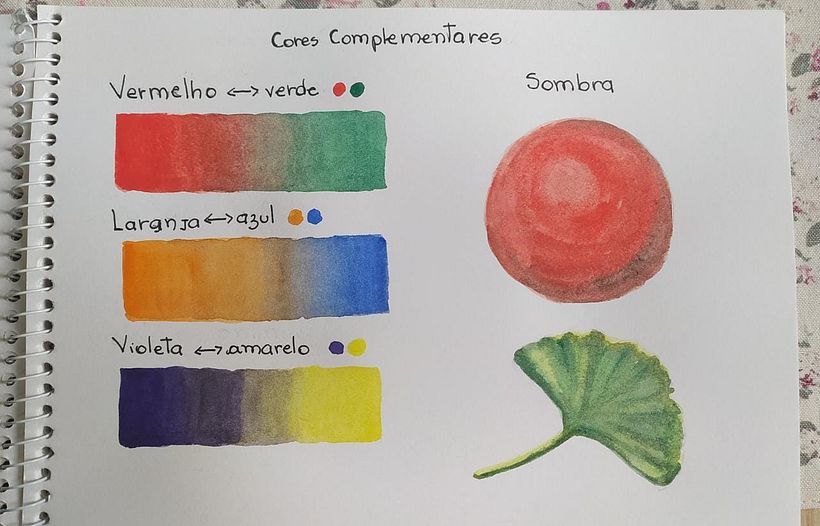 Cores Complementares
Vermelho <-> verde
Laranja <-> azul
Violeta <-> amarelo
Sombra